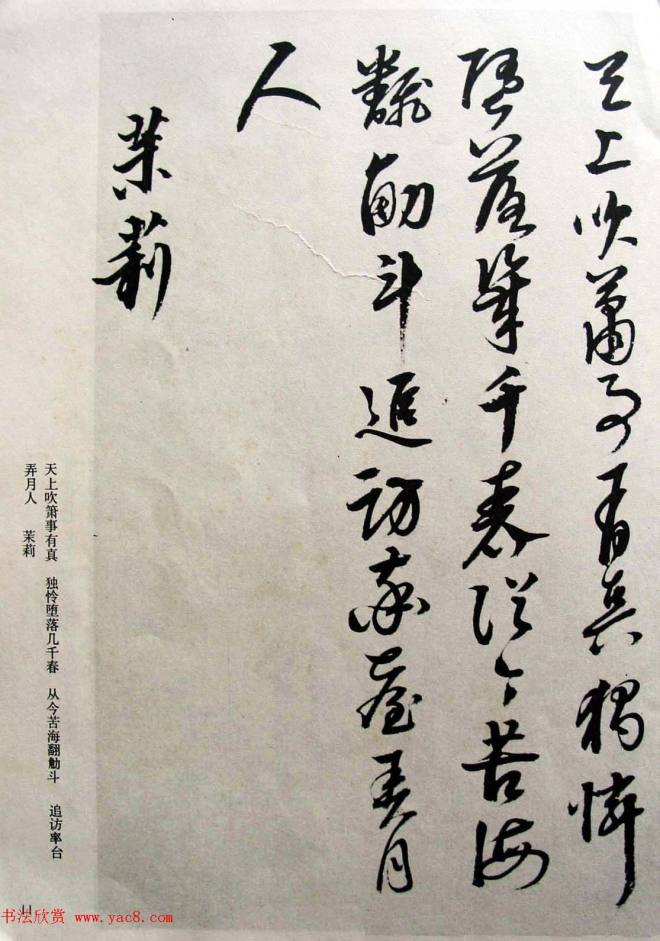 天上吹萧事有真独怜
堕落几千春从今苦海
翻觔斗追访率台弄月
人
茉莉
天上吹箫事有真　独怜堕落几千春　从今苦海翻觔斗　追访率台
弄月人　茉莉
11
书法欣赏 www.yac8.com